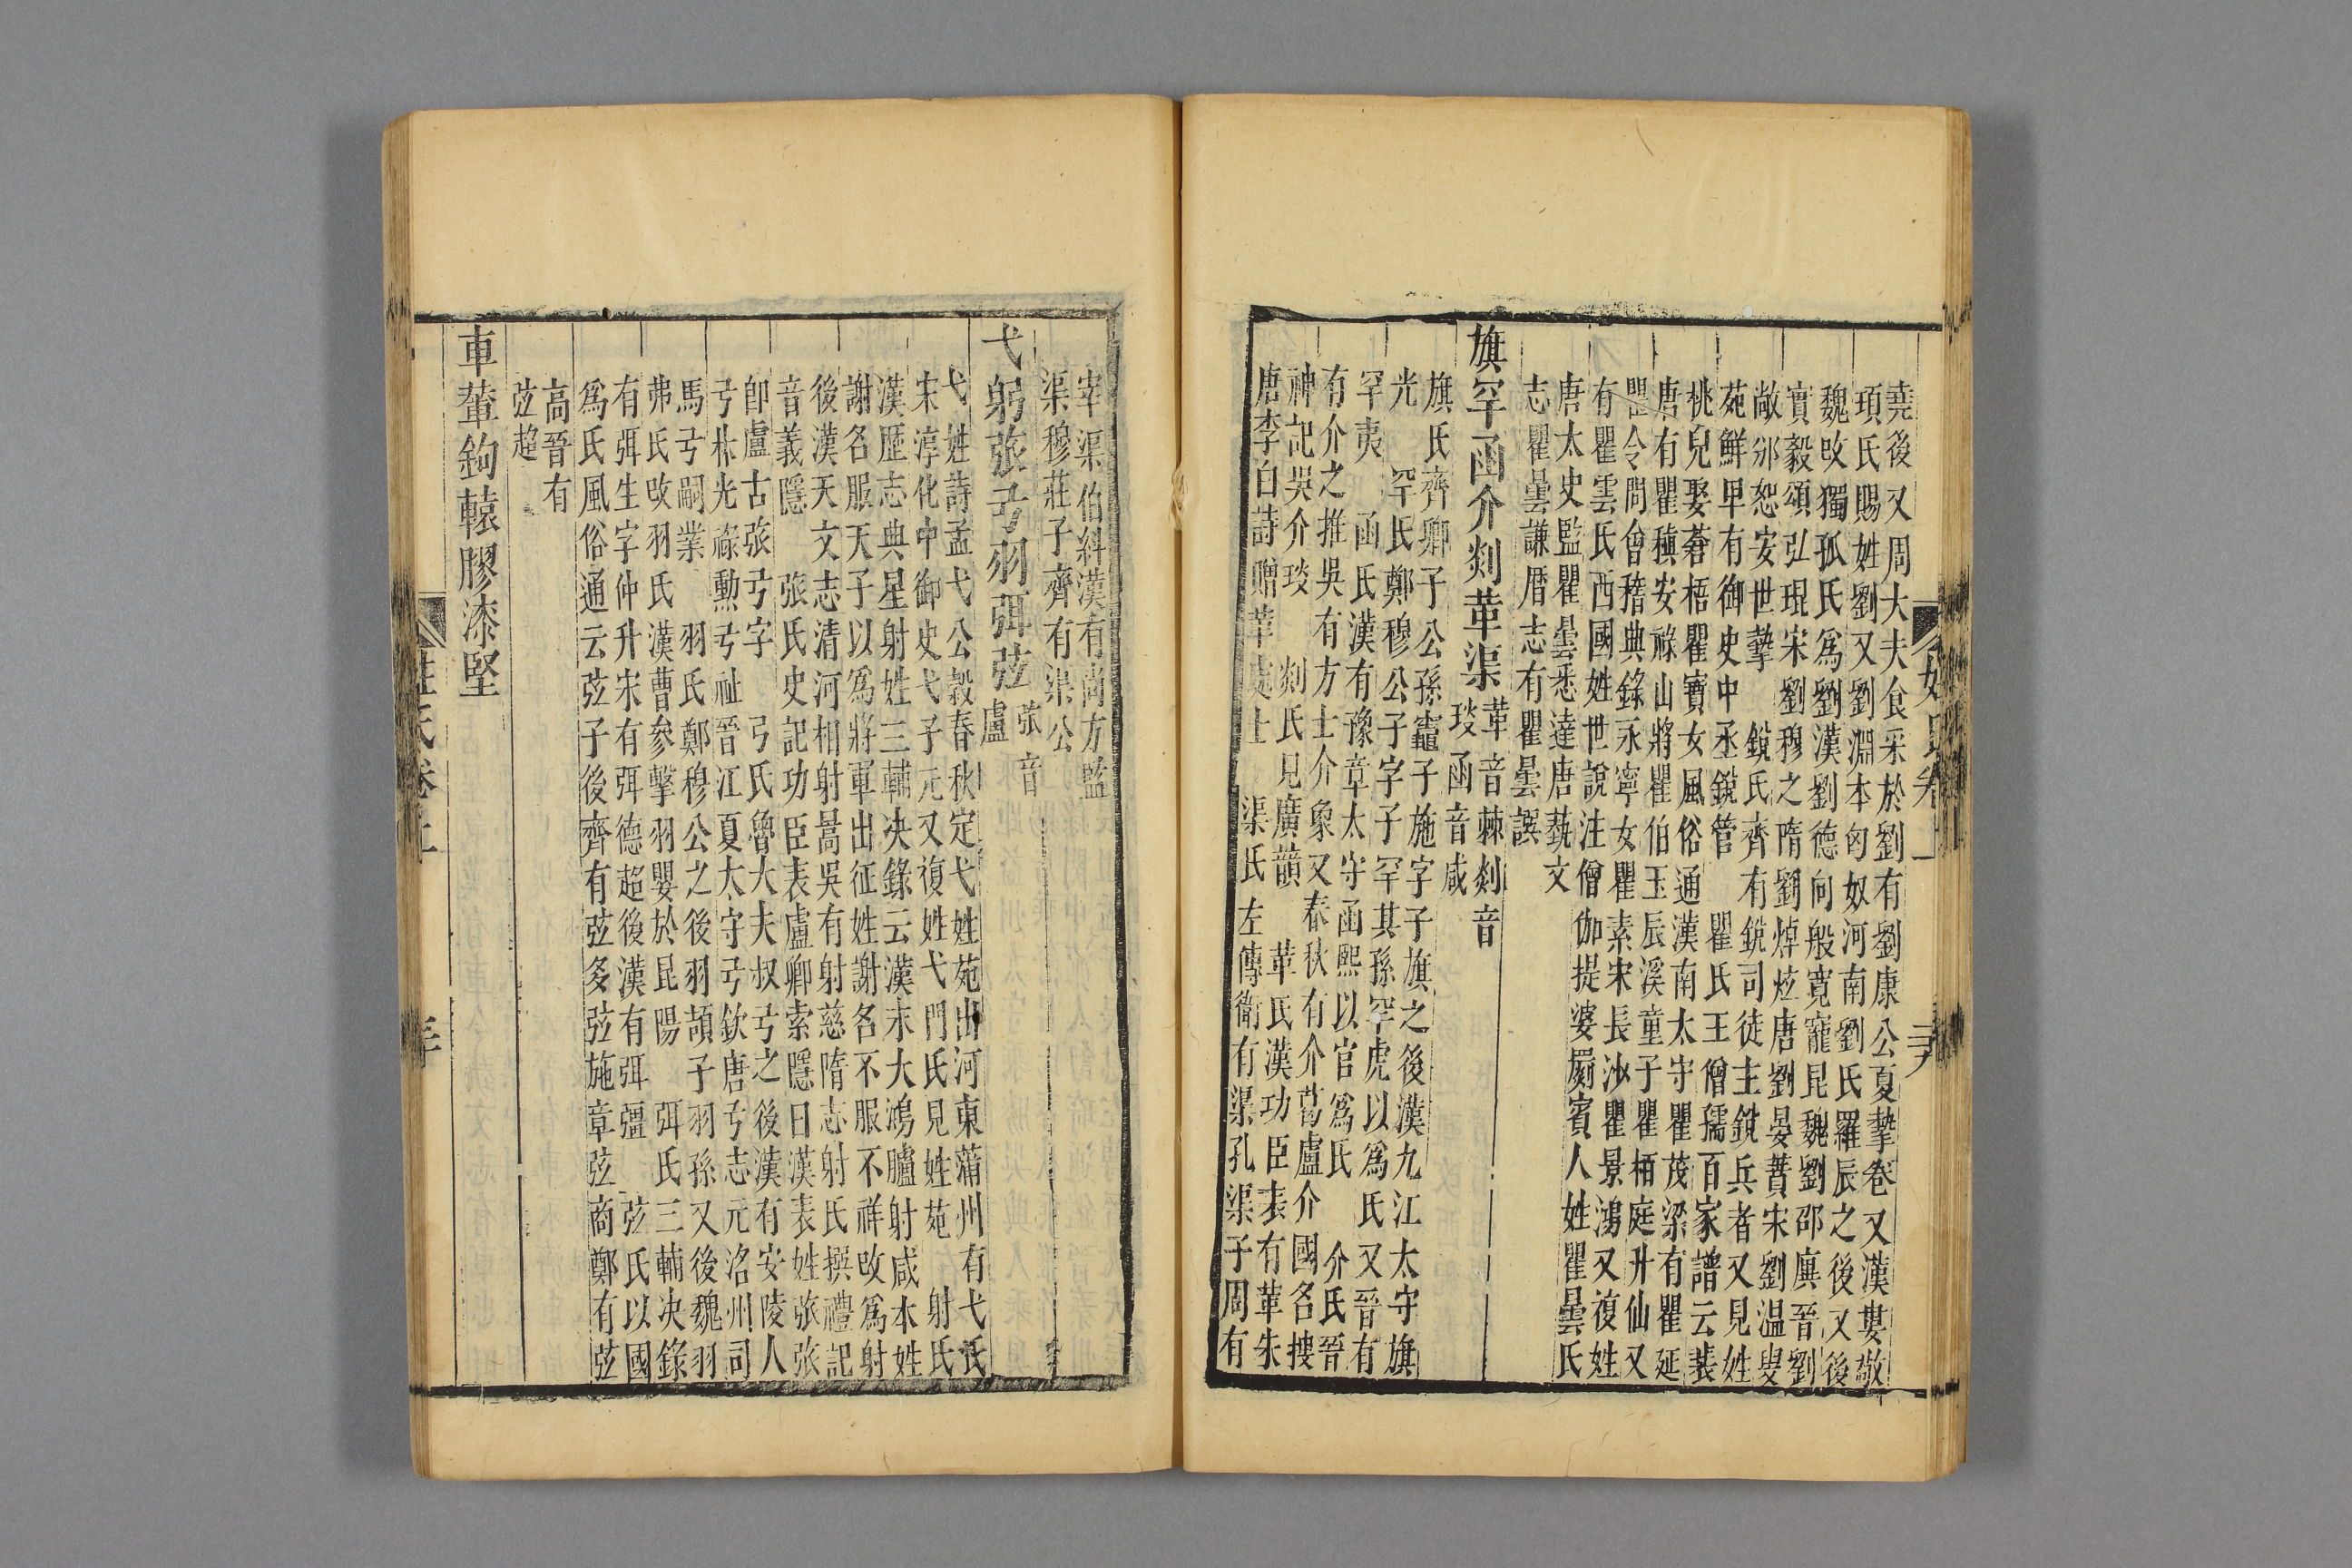 堯後又周大夫食采於劉有劉康公夏摯卷又漢婁敬
項氏賜姓劉又劉淵本匈奴河南劉氏羅辰之後又後
魏攺獨孤氏爲劉漢劉德向般寛寵昆魏劉邵廙晉劉
實毅頌弘琨宋劉穆之隋劉焯炫唐劉晏蕡宋劉温叟
敞邠恕安世摯　銳氏齊有銳司徒主銳兵者又見姓
苑鮮卑有御史中丞銳管　瞿氏王僧孺百家譜云裴
桃兒娶蒼梧瞿寶女風俗通漢南太守瞿茂梁有瞿延
唐有瞿稹安祿山將瞿伯玉辰溪童子瞿栢庭升仙又
瞿令問會稽典錄永寧女瞿素宋長沙瞿景鴻又複姓
有瞿雲氏西國姓世說注僧伽提婆罽賓人姓瞿曇氏
唐太史監瞿曇悉達唐藝文
志瞿曇謙曆志有瞿曇譔
旗罕函介剡革渠
革音棘剡音
琰函音咸
旗氏齊卿子公孫竈子施字子旗之後漢九江太守旗
光　罕氏鄭穆公子字子罕其孫罕虎以爲氏又晉有
罕夷　函氏漢有豫章太守函熙以官爲氏　介氏晉
有介之推吳有方士介象又春秋有介葛盧介國名摟
神記吳介琰　剡氏見廣韻　革氏漢功臣表有革朱
唐李白詩贈革處士　渠氏左傳衞有渠孔渠子周有
宰渠伯糾漢有尚方監
渠穆莊子齊有渠公
弋躬張弓羽弭弦
張音
盧
弋姓詩孟弋公榖春秋定弋姓苑出河東蒲州有弋氏
宋淳化中御史弋子元又複姓弋門氏見姓苑　射氏
漢歷志典星射姓三輔决錄云漢末大鴻臚射咸本姓
謝名服天子以爲將軍出征姓謝名不服不祥攺爲射
後漢天文志清河相射暠吳有射慈隋志射氏撰禮記
音義隱　張氏史記功臣表盧卿索隱曰漢表姓張張
卽盧古張弓字　弓氏魯大夫叔弓之後漢有安陵人
弓林光祿勳弓祉晉江夏太守弓欽唐弓志元洺州司
馬弓嗣業　羽氏鄭穆公之後羽頡子羽孫又後魏羽
弗氏攺羽氏漢曹參擊羽嬰於昆陽　弭氏三輔决錄
有弭生字仲升宋有弭德超後漢有弭彊　弦氏以國
爲氏風俗通云弦子後齊有弦多弦施章弦商鄭有弦
高晉有
弦超
車輦鉤轅膠漆堅